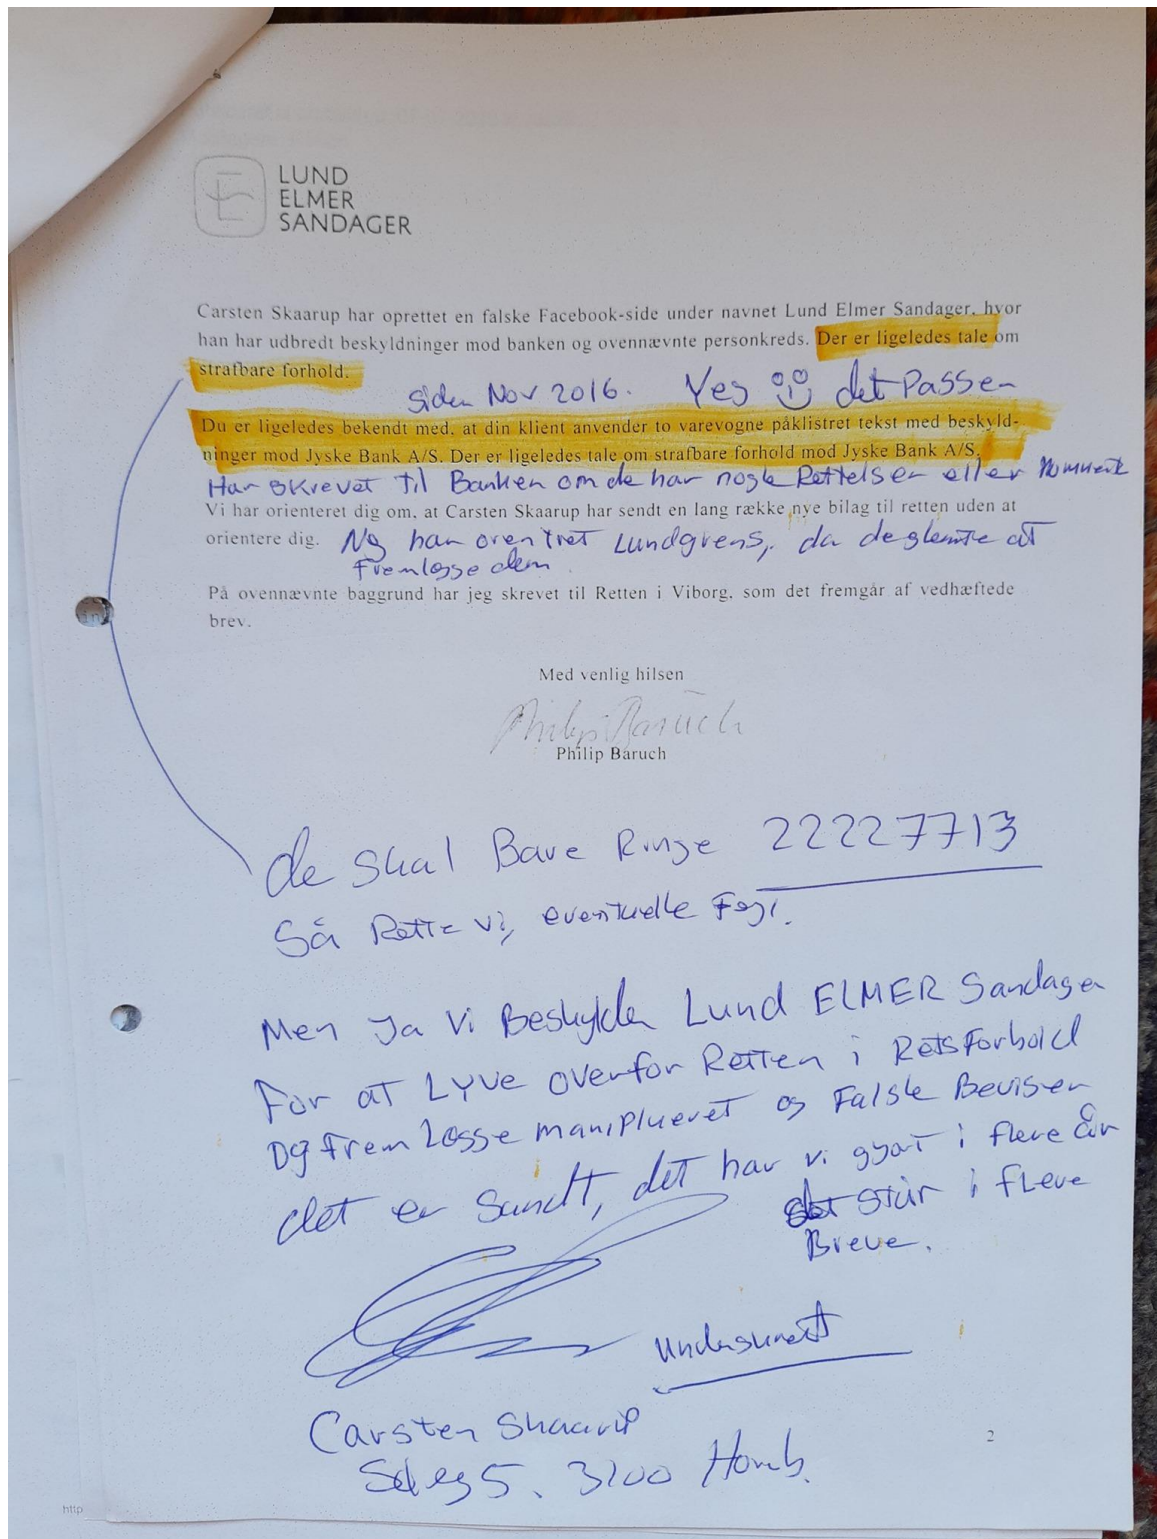 LUND
ELMER
SANDAGER
Carsten Skaarup har oprettet en falske Facebook-side under navnet Lund Elmer Sandager, hvor
han har udbredt beskyldninger mod banken og ovennævnte personkreds. Der er ligeledes tale om
strafbare forhold.
siden Nov 2016. Yes det Passer
Du er ligeledes bekendt med, at din klient anvender to varevogne påklistret tekst med beskyld-
ninger mod Jyske Bank A/S. Der er ligeledes tale om strafbare forhold mod Jyske Bank A/S.
Har skrevet til Banken om de har nogle Rettelser eller
Vi har orienteret dig om, at Carsten Skaarup har sendt en lang række nye bilag til retten uden at
orientere dig. har orentret Lundgrens, da de glemte at
Fremlægge dem.
På ovennævnte baggrund har jeg skrevet til Retten i Viborg, som det fremgår af vedhæftede
brev.
Med venlig hilsen
Philip Baruch
Philip Baruch
de skal Bare Ringe 22227713
Så Rette vi, eventuelle Fejl.
Men Ja Vi Beskylder Lund ELMER Sandager
For at LYVE overfor Retten i Retsforhold
Og frem Lægge maniplueret og Falske Beviser
det er Sandt, det har vi gjort i flere år
det står i flere
Breve.
Underskrevet
Carsten Skaarup
5. 3100 Hornb.
2
http